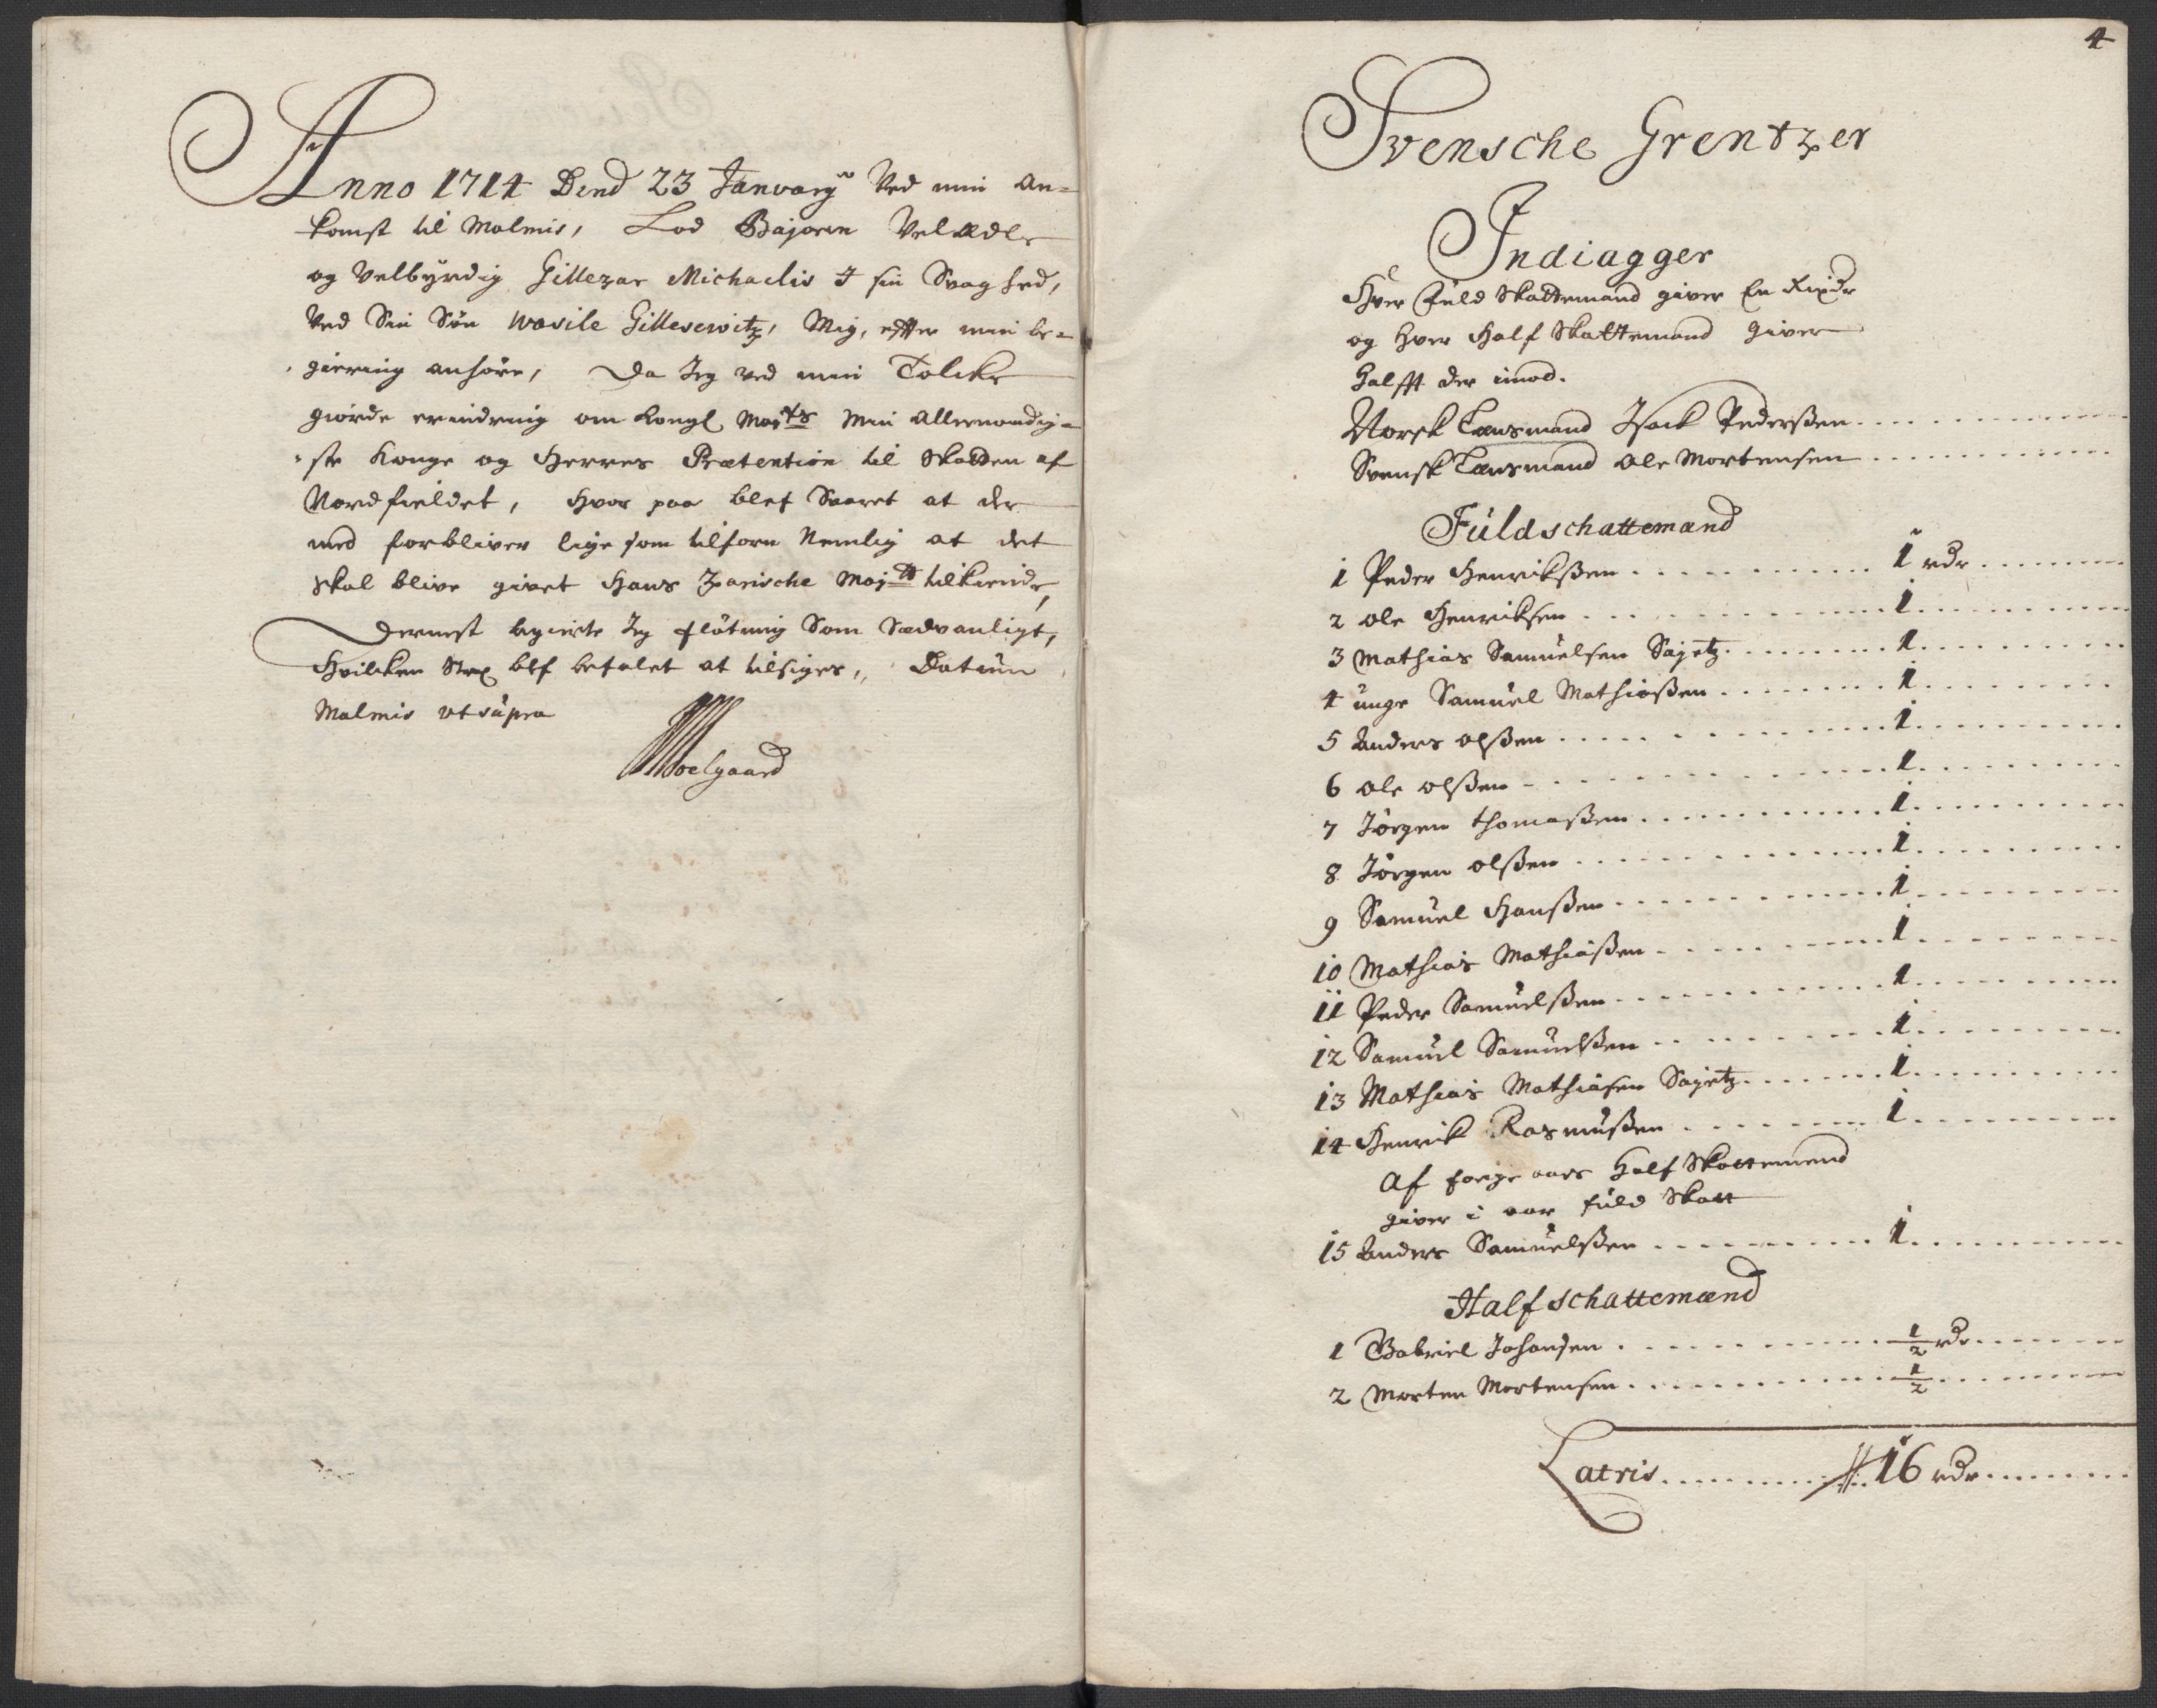 Anno 1714 Dend 23 Januarij Ved min an=
komst til Malmis, Lod Bajoren Vel ædle
og Velbyrdig Gillezar Michaelis I sin Svaghed,
Ved Sin Søn Wasile Gillesewitz, Mig, effter min be=
giering anhøre, Da Jeg ved min Tolck
giorde erindring om Kongl Mayts Min Allernaadig=
ste Konge og Herres Prætention til Skatten af
Nordfieldet, Hvor paa blef Svaret at der
med forbliver lige som tilforn Nemlig at det
skal blive givet Hans Zarische Mayts tilkiende,
Dernest begierte Jeg fløtning Som Sædvanligt,
Hvilken Strax blef befalet at tilsiges, Datum
Malmis ut supra
Soelgaard
4
Svensche Grentzer
Indiagger
Hver Fuld Skattemand giver En Rixdr
og Hver Half Skattemand giver
Halfft der imod.
Norsk Lænsmand Isack Pederßen
Svensk Lænsmand Ole Mortensen
Fuldschattemænd
1 Peder Henrikßen 1 rdr
2 Ole Henriksen 1
3 Mathias Samuelsen Sajetz 1
4 unge Samuel Mathiaßen 1
5 Anders olßen 1
6 Ole olßen 1
7 Jørgen Thomaßen 1
8 Jørgen olßen 1
9 Samuel Hanßen 1
10 Mathias Mathiaßen 1
11 Peder Samuelßen 1
12 Samuel Samuelßen 1
13 Mathias Mathiasen Sajetz 1
14 Henrik Rasmußen 1
Af forige aars Half Skattemænd
giver i aar fuld Skatt
15 Anders Samuelßen 1
Halfschattemænd
1 Gabriel Johansen 1/2 rdr
2 Morten Mortensen 1/2
Latris 16 rdr